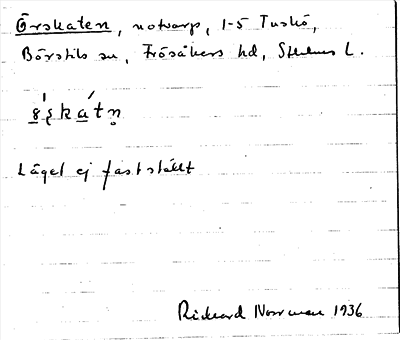 Örskaten, notvarp, 1-5 Tuskö,
Börstils sn, Frösåkers hd, Sthlms L.
Läget ej fastställt
Rickard Norrman 1936